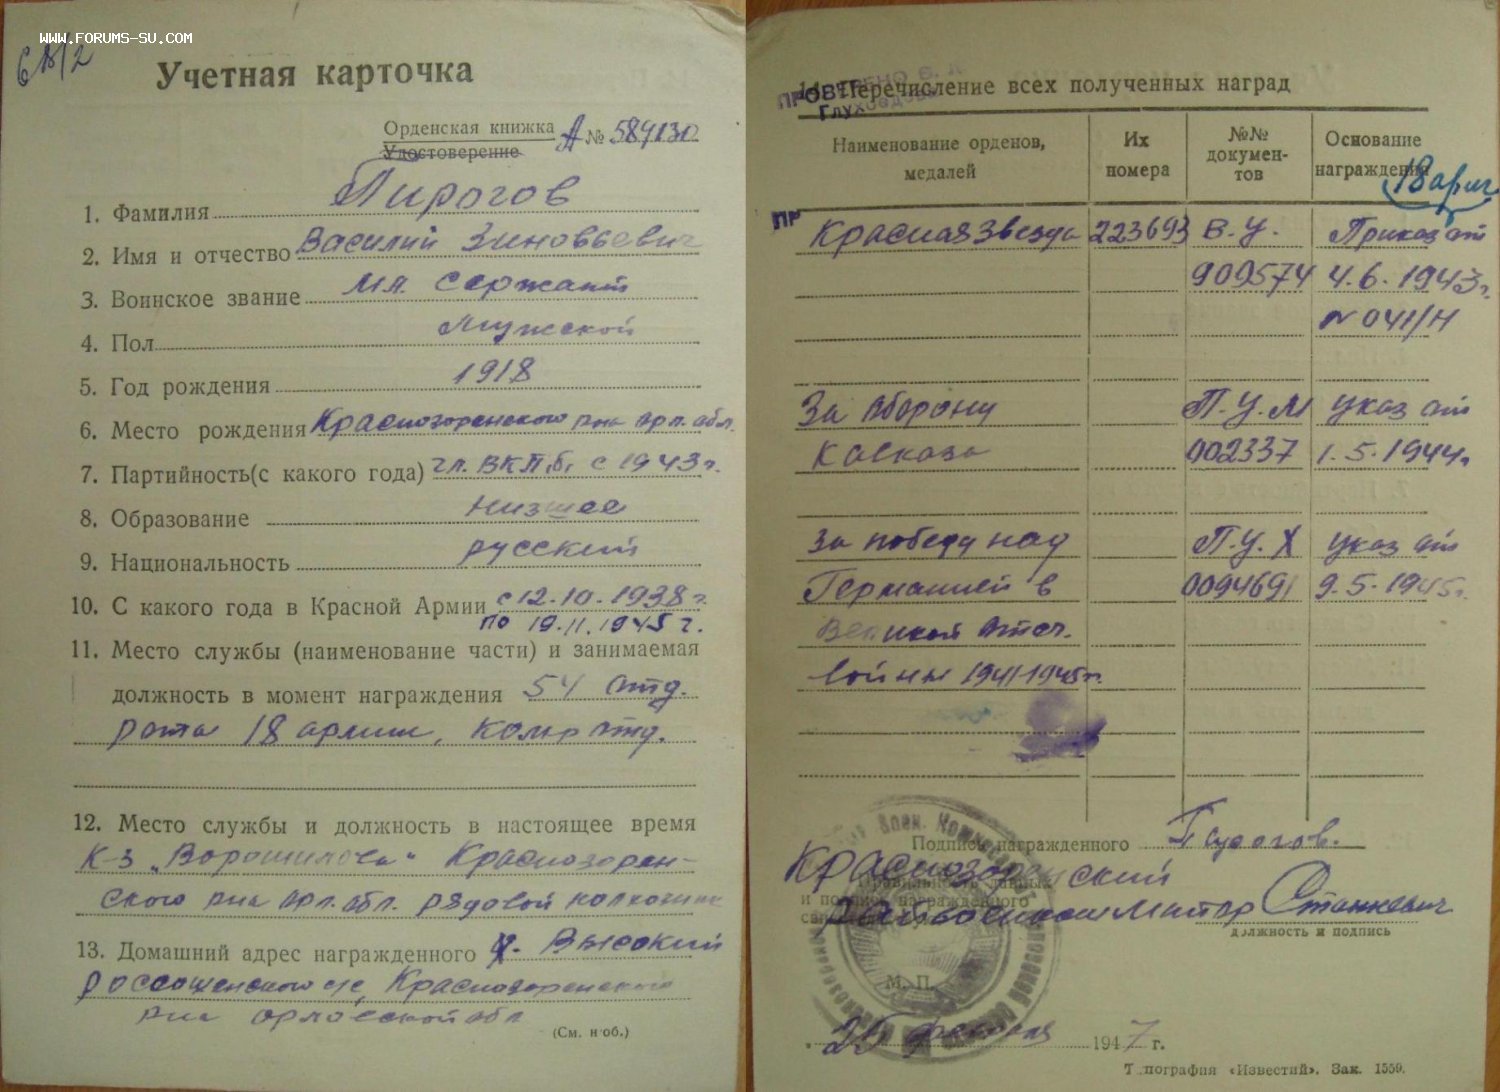 WWW.FORUMS-SU.COM
Учетная карточка
Орденская книжка А № 584130
Удостоверение
1. Фамилия Пирогов
2. Имя и отчество Василий Зиновьевич
3. Воинское звание мл. сержант
4. Пол мужской
5. Год рождения 1918
6. Место рождения Краснозоренского р-на Орл. обл.
7. Партийность(с какого года) чл. ВКП.б. с 1943 г.
8. Образование низшее
9. Национальность русский
10. С какого года в Красной Армии с 12.10.1938 г.
по 19.11.1945 г.
11. Место службы (наименование части) и занимаемая
должность в момент награждения 54 отд.
рота 18 армии, ком-р отд.
12. Место службы и должность в настоящее время
к-з „Ворошилова" Краснозорен-
ского р-на Орл. обл. рядовой колхозник
13. Домашний адрес награжденного Высокий
Россошенского с/с, Краснозоренского
р-на Орловской обл
(См. н об.)
ПРОВЕРЕНО
14. Перечисление всех полученных наград
Наименование орденов, медалей
Их номера
№№ документов
Основание награждения
18 арм
ПР
Красная Звезда 223693 В.У. Приказ от
909574 4.6.1943 г.
№ 041/Н
За оборону П.У.М указ от
Кавказа 002337 1.5.1944 г.
За победу над П.У.Х указ от
Германией в 0094691 9.5.1945 г.
Великой Отеч.
войны 1941-1945 г.
Подпись награжденного Пирогов.
Краснозоренский
Правильность данных
и подпись награжденного
Райвоенком Майор Станкевич
должность и подпись
М. П.
25 февраля 1947 г.
Типография «Известий». Зак. 1559.